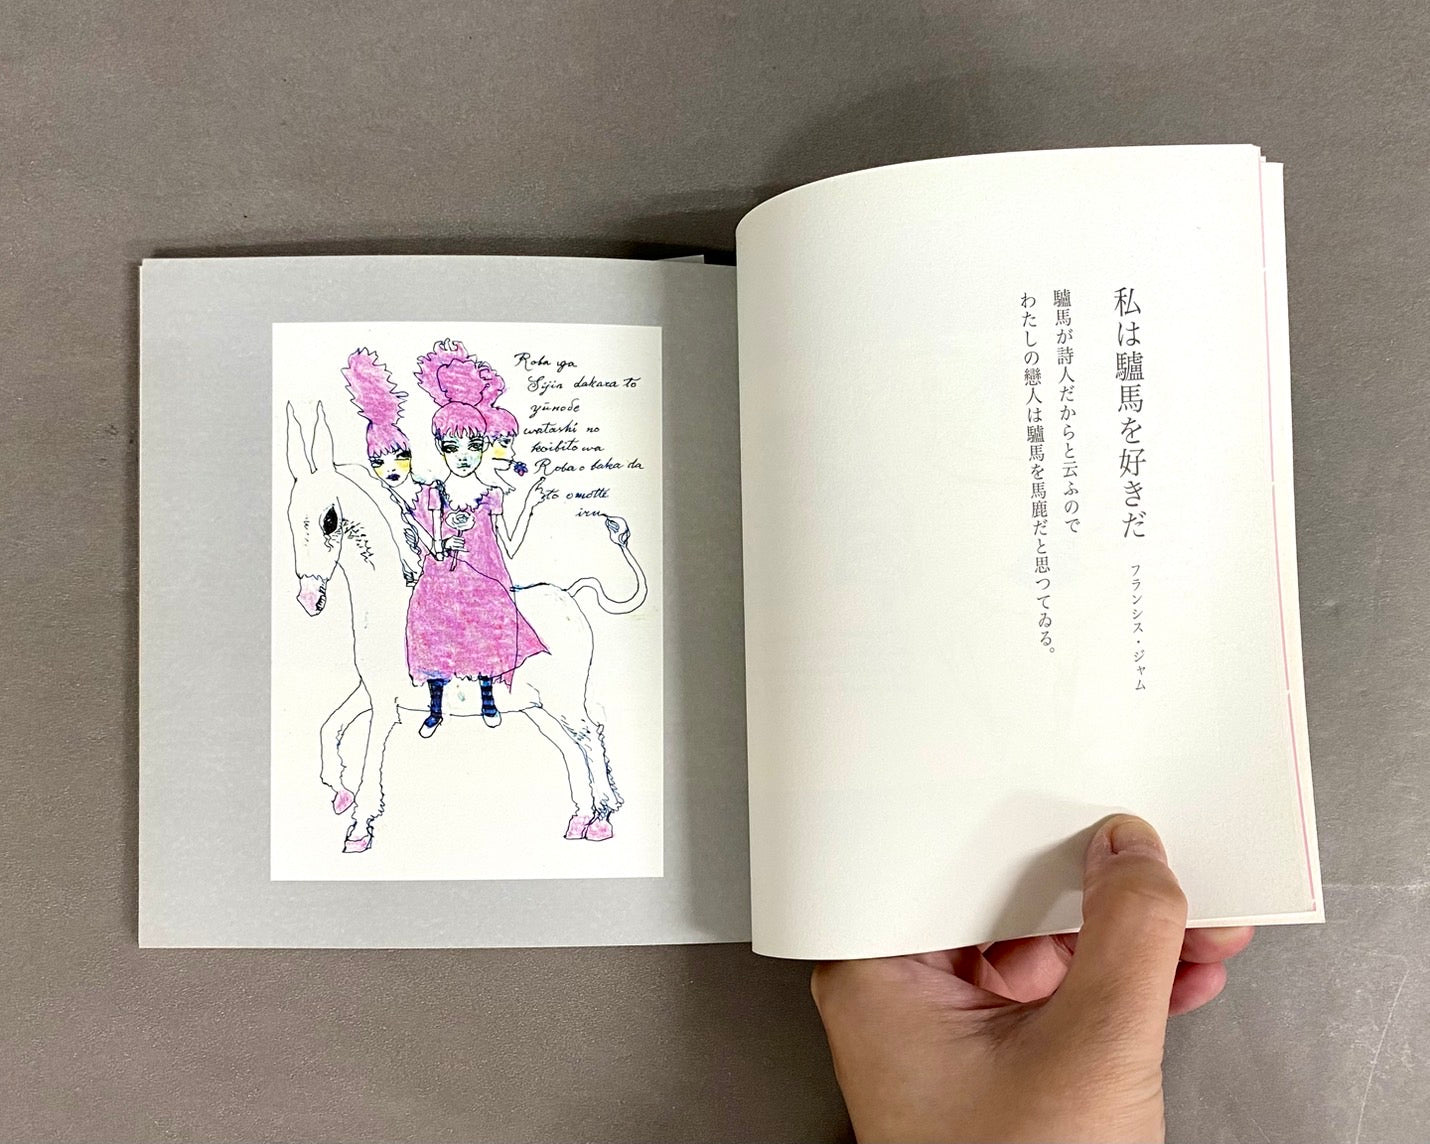 Roba ga
Sijin dakara to
yūnode
watashi no
koibito wa
Roba o baka da
to omotte
iru
私は驢馬を好きだ　フランシス・ジャム
驢馬が詩人だからと云ふので
わたしの戀人は驢馬を馬鹿だと思つてゐる。